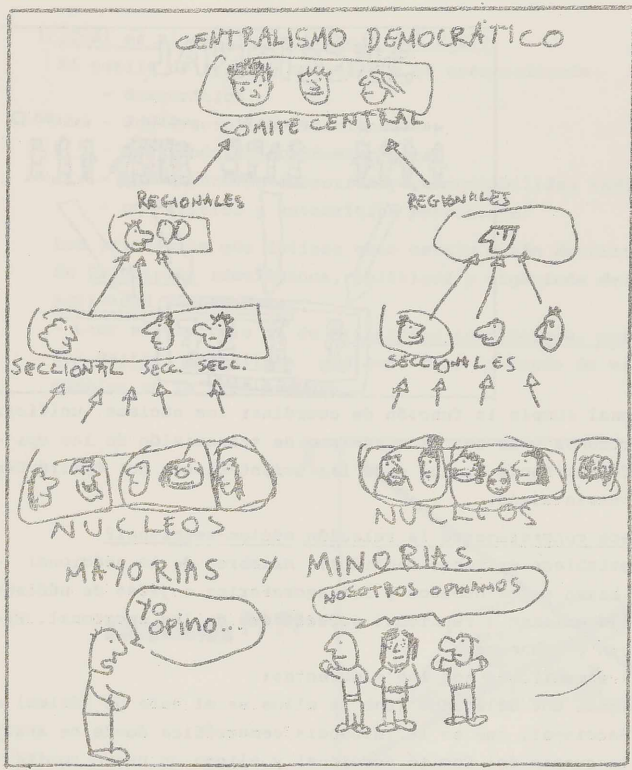 CENTRALISMO DEMOCRÁTICO
COMITE CENTRAL
REGIONALES
REGIONALES
SECCIONAL SECC. SECC.
SECCIONALES
NUCLEOS
NUCLEOS
MAYORIAS / MINORIAS
YO
OPINO..
NOSOTROS OPINAMOS